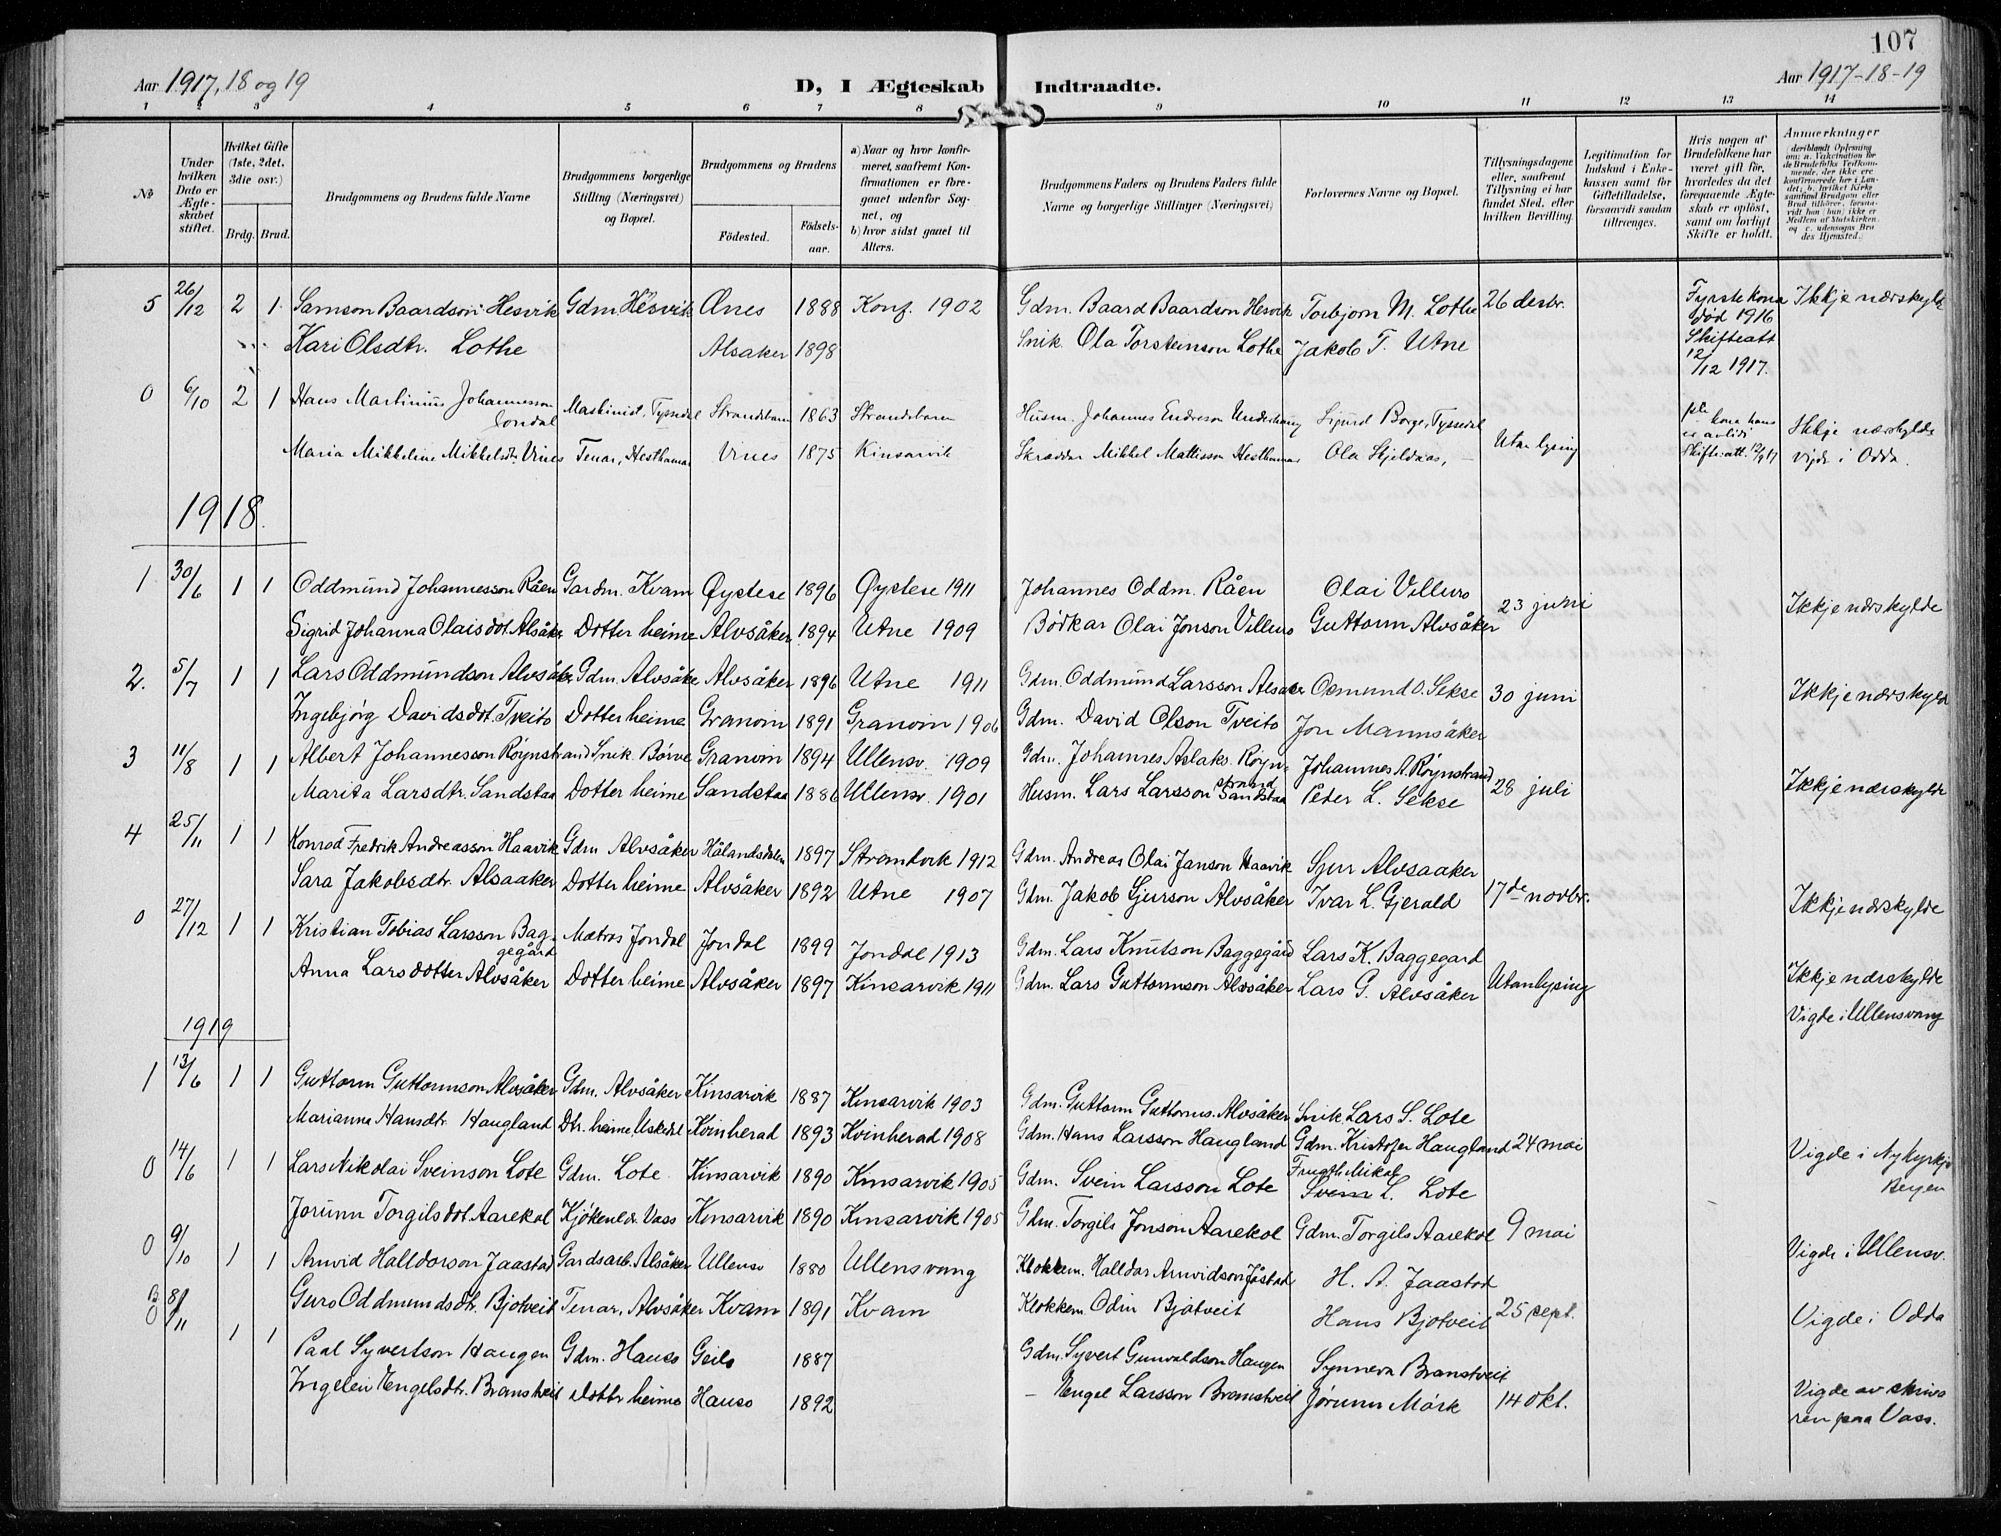 107
Aar 1917, 18 og 19
D, I Ægteskab Indtraadte.
Aar 1917-18-19
1 2 3 4 5 6 7 8 9 10 11 12 13 14
No
Under hvilken Dato er Ægteskabet stiftet.
Hvilket Gifte (1ste, 2det, 3die osv.)
Brdg. Brud.
Brudgommens og Brudens fulde Navne
Brudgommens borgerlige Stilling (Næringsvei) og Bopæl.
Brudgommens og Brudens
Fødested.
Fødselsaar.
a) Naar og hvor konfirmeret, saafremt Konfirmationen er foregaaet udenfor Sognet, og
b) hvor sidst gaaet til Alters.
Brudgommens Faders og Brudens Faders fulde Navne og borgerlige Stillinger (Næringsvei)
Forlovernes Navne og Bopæl.
Tillysningsdagene eller, saafremt Tillysning ei har fundet Sted, efter hvilken Bevilling.
Legitimation for Indskud i Enkekassen samt for Giftetilladelse, forsaavidt saadan tiltrænges.
Hvis nogen af Brudefolkene har været gift før, hvorledes da det foregaaende Ægteskab er opløst, samt om lovligt Skifte er holdt.
Anmerkninger deriblandt Oplysning om: a. Vakcination for de Brudefolks Vedkommende, der ikke ere konfirmerede her i Landet; b. hvilket Kirkesamfund Brudgom eller Brud tilhører, forsaavidt han (hun) ikke er Medlem af Statskirken, og c. udensogns Brudes Hjemsted.
5 26/12 2 1 Samson Baardson Hesvik Gdm Hesvik Ænes 1888 Konf. 1902 Gdm. Baard Baardson Hesvik Torbjorn M. Lothe 26 desbr. Fyrste kona død 1916 Skifteatt 12/12 1917. Ikkje nærskylde
Kari Olsdtr. Lothe Alsaker 1898 Snik. Ola Torsteinson Lothe Jakob T. Utne
0 6/10 2 1 Hans Martinius Johannesson Jondal Maskinist, Tyssedal Strandebarm 1863 Strandebarm Husm. Johannes Endreson Sigurd Borge, Tyssedal Utan lysing kona hans Skifteatt. 12/9 17 Ikkje nærskylde
Maria Mikkeline Mikkelsdt. Vines Tenar, Hesthamar Vines 1875 Kinsarvik Skræddar Mikkel Mattisson Hesthamar Ola Skjeldaas, — vigde i Odda.
1918.
1 30/6 1 1 Oddmund Johannesson Råen Gardm. Kvam Øystese 1896 Øystese 1911 Johannes Oddm. Råen Olai Villuro 23 juni Ikkje nærskylde
Sigrid Johanna Olaisdot. Alsåker Dotter heime Alvsåker 1894 Utne 1909 Bødkar Olai Jonson Villuro Guttorm Alvsåker
2. 5/7 1 1 Lars Oddmundson Alvsåker Gdm. Alvsåke Alvsåker 1896 Utne 1911 Gdm. Oddmund Larsson Alsaker Osmund O. Sekse 30 juni Ikkje nærskylde
Ingebjørg Davidsdot. Tveito Dotter heime Granvin 1891 Granvin 1906 Gdm. David Olson Tveito Jon Mannsåker
3 11/8 1 1 Albert Johannesson Røynstrand Snik. Børve Granvin 1894 Ullensv. 1909 Gdm. Johannes Aslaks. Røynstrand Johannes A. Røynstrand 28 juli Ikkje nærskylde
Marita Larsdtr. Sandstaa Dotter heime Sandstaa 1886 Ullensv. 1901 Husm. Lars Larsson Sandstaa Peder L. Sekse
4 25/11 1 1 Konrad Fredrik Andreasson Haavik Gdm Alvsåker Hålandsdalen 1897 Strandvik 1912 Gdm. Andreas Olai Janson Haavik Sjur Alvsaaker 17de novbr. Ikkje nærskylde
Sara Jakobsdtr. Alsaaker Dotter heime Alvsåker 1892 Utne 1907 Gdm. Jakob Sjurson Alvsåker Ivar L. Gjerald
0 27/12 1 1 Kristian Tobias Larsson Baggegård Matros Jondal Jondal 1899 Jondal 1913 Gdm. Lars Knutson Baggegård Lars K. Baggegard Utan lysing Ikkje nærskylde
Anna Larsdotter Alvsåker Dotter heime Alvsåker 1897 Kinsarvik 1911 Gdm. Lars Guttormson Alvsåker Lars G. Alvsåker Vigde i Ullensvang
1919
1 13/6 1 1 Guttorm Guttormson Alvsåker Gdm. Alvsåker Kinsarvik 1887 Kinsarvik 1903 Gdm. Guttorm Guttorms. Alvsåker Snik. Lars S. Lote
Marianne Hansdtr. Haugland Dtr. heime, Uskedal Kvinherad 1893 Kvinherad 1908 Gdm. Hans Larsson Haugland Gdm. Kristofer Haugland 24 mai Vigde i Nykyrkja Bergen
0 14/6 1 1 Lars Nikolai Sveinson Lote Gdm. Lote Kinsarvik 1890 Kinsarvik 1905 Gdm. Svein Larsson Lote Svein L. Lote
Jorunn Torgilsdot. Aarekol Vass Kinsarvik 1890 Kinsarvik 1905 Gdm. Torgils Jonson Aarekol Gdm. Torgils Aarekol 9 mai Vigde i Ullensv.
0 9/10 1 1 Arnvid Halldorson Jaastad Gardsarb. Alsåker Ullensv 1880 Ullensvang Klokkem. Halldor Arnvidson Jåstad H. A. Jaastad
Guro Oddmundsdtr. Bjotveit Tenar, Alvsåker Kvam 1891 Kvam Klokkem Odin Bjotveit Hans Bjotveit 25 sept. Vigde i Odda
0 8/11 1 1 Paal Syvertson Haugen Gdm. Hauso Geilo 1887 Gdm. Syvert Gunvaldson Haugen Synneva Bramstveit
Ingeleiv Nengelsdtr. Bramstveit Dottr heime Hauso 1892 — Nengel Larsson Bramstveit Jørunn Mörk 14 okt. Vigde av skrivaren paa Vass.